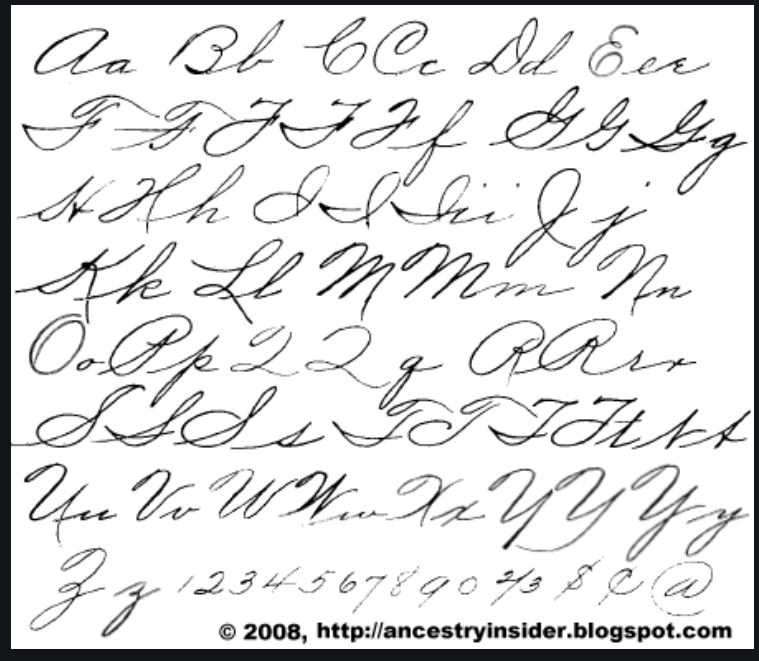 Aa Bb CCc Dd Eee
FFFFFf GGGg
HHh IIIii Jj
Kk Ll MMm Nn
Oo Pp QQq RRrr
SSSs TTTTttt
Uu Vv WWw Xx YYYy
Zz 1234567890 2/3 $ ¢ @
© 2008, http://ancestryinsider.blogspot.com